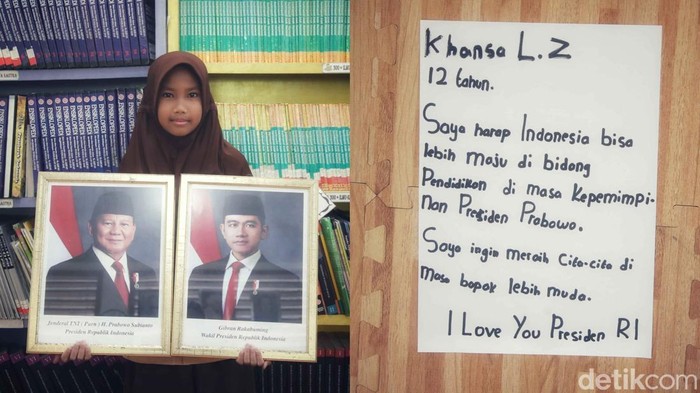 Jenderal TNI (Purn) H. Prabowo Subianto
Presiden Republik Indonesia
Gibran Rakabuming
Wakil Presiden Republik Indonesia
Khansa L.Z
12 tahun.
Saya harap Indonesia bisa
lebih maju di bidang
Pendidikan di masa Kepemimpi-
nan Presiden Prabowo.
Saya ingin meraih Cita-cita di
masa bapak lebih muda.
I Love You Presiden RI
detikcom